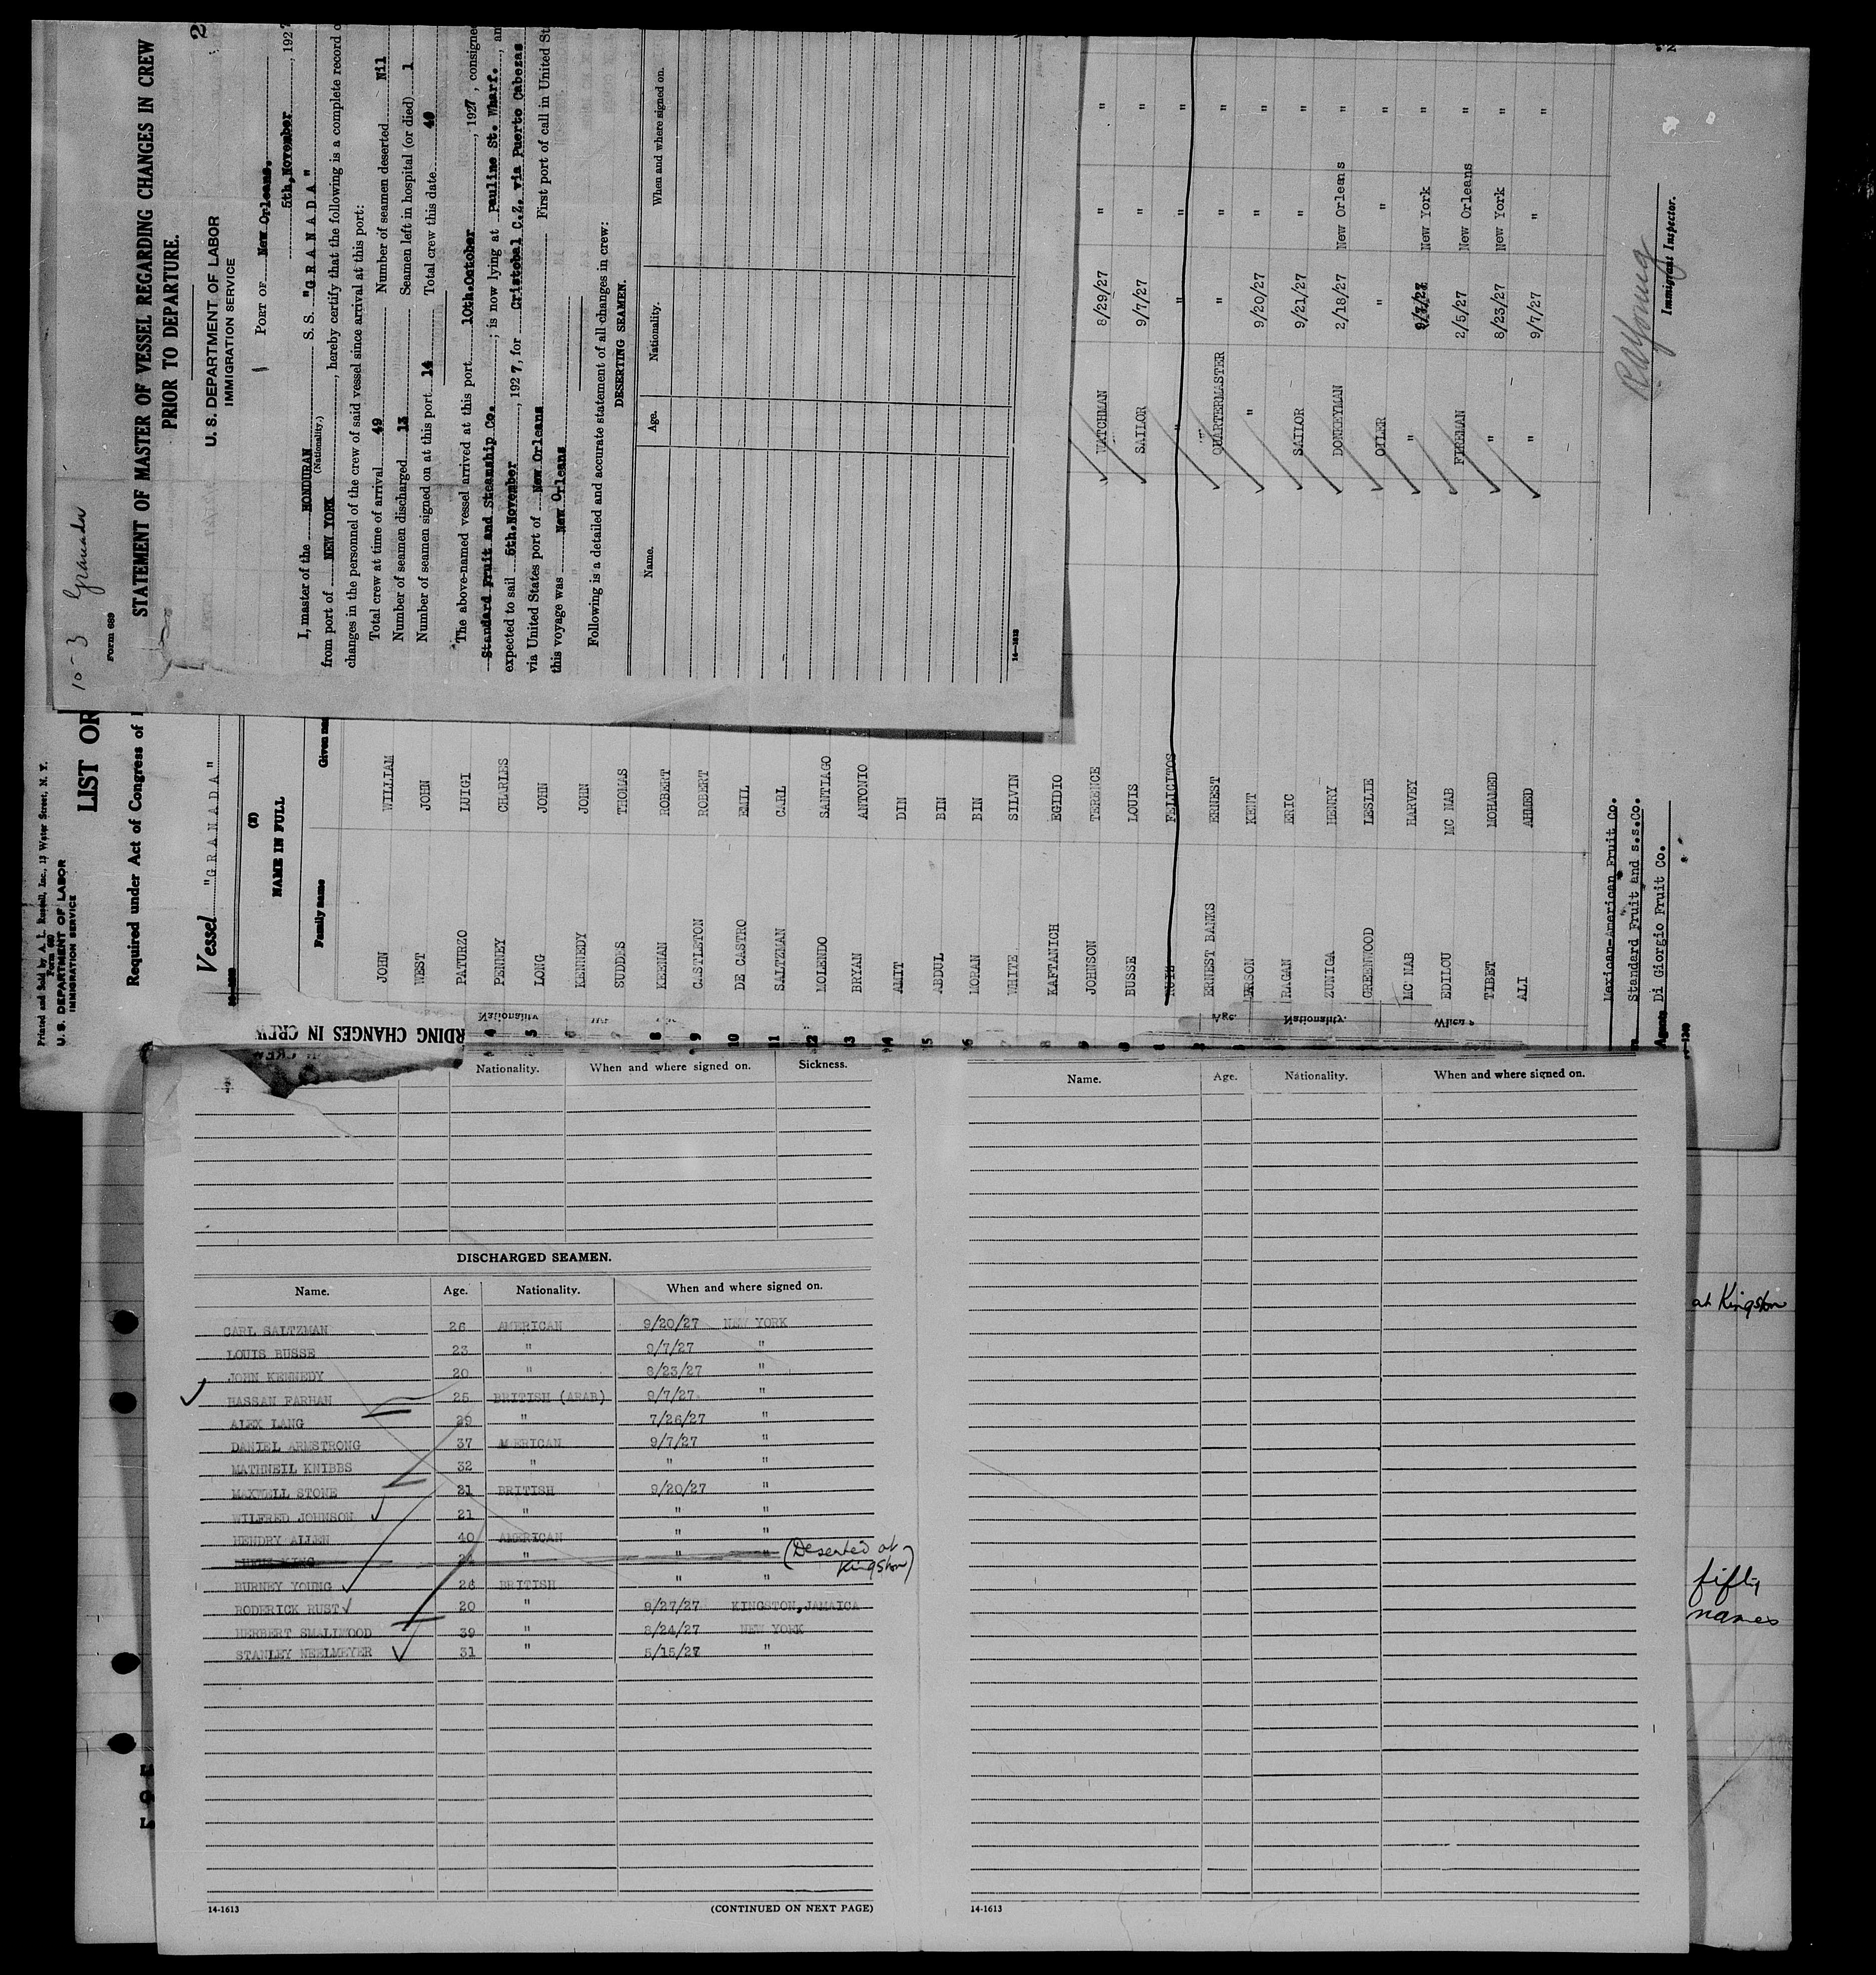 10-3 Granada
Form 689
STATEMENT OF MASTER OF VESSEL REGARDING CHANGES IN CREW
PRIOR TO DEPARTURE.
2
U. S. DEPARTMENT OF LABOR
IMMIGRATION SERVICE
PORT OF New Orleans.
5th,November, 1927
I, master of the HONDURAN S. S. "G R A N A D A"
(Nationality,)
from port of NEW YORK, hereby certify that the following is a complete record
changes in the personnel of the crew of said vessel since arrival at this port:
Total crew at time of arrival 49 Number of seamen deserted Nil
Number of seamen discharged 13 Seamen left in hospital (or died) 1
Number of seamen signed on at this port 14 Total crew this date 49
The above-named vessel arrived at this port 10th.October, 1927, consigned
Standard Fruit and Steamship Co. ; is now lying at Pauline St. Wharf.
expected to sail 5th.November, 1927, for Cristobal C.Z. via Puerto Cabezas
via United States port of New Orleans First port of call in United St
this voyage was New Orleans
Following is a detailed and accurate statement of all changes in crew:
DESERTING SEAMEN.
Name. Age. Nationality. When and where signed on.
14-1613
Printed and Sold by A. L. Russell, Inc., 13 Water Street, N. Y.
Form 680
U. S. DEPARTMENT OF LABOR
IMMIGRATION SERVICE
LIST OR
Required under Act of Congress of
Vessel "G R A N A D A"
(2)
NAME IN FULL
Family name Given
JOHN WILLIAM
WEST JOHN
PATURZO LUIGI
4 PENNEY CHARLES
5 LONG JOHN
6 KENNEDY JOHN
7 SUDDES THOMAS
8 KEENAN ROBERT
9 CASTLETON ROBERT
10 DE CASTRO EMIL
11 SALTZMAN CARL
12 MOLENDO SANTIAGO
13 BRYAN ANTONIO
14 AMIT DIN
15 ABDUL BIN
16 MORAN BIN
WHITE SILVIN
KAFTANICH EGIDIO
JOHNSON TERENCE WATCHMAN 8/29/27 " "
BUSSE LOUIS SAILOR 9/7/27 " "
FELICITOS " " " "
ERNEST BANKS ERNEST QUARTERMASTER " " "
KENT " 9/20/27 " "
RAGAN ERIC SAILOR 9/21/27 " "
ZUNIGA HENRY DONKEYMAN 2/18/27 New Orleans "
GREENWOOD LESLIE OILER " " "
MC NAB HARVEY " 9/7/27 New York "
EDILOU MC NAB FIREMAN 2/5/27 New Orleans "
TIBET MOHAMED " 8/23/27 New York "
ALI AHMED " 9/7/27 " "
Mexican-American Fruit Co.
Standard Fruit and S.S.Co.
Agents Di Giorgio Fruit Co.
Immigrant Inspector.
RDING CHANGES IN CREW
Nationality. When and where signed on. Sickness.
DISCHARGED SEAMEN.
Name. Age. Nationality. When and where signed on.
CARL SALTZMAN 26 AMERICAN 9/20/27 NEW YORK
LOUIS BUSSE 23 " 9/7/27 "
JOHN KENNEDY 20 " 8/23/27 "
HASSAN FARHAN 25 BRITISH (ARAB) 9/7/27 "
ALEX LANG 29 " 7/26/27 "
DANIEL ARMSTRONG 37 AMERICAN 9/7/27 "
MATHNEIL KNIBBS 32 " " "
MAXWELL STONE 21 BRITISH 9/20/27 "
WILFRED JOHNSON 21 " " "
HENDRY ALLEN 40 AMERICAN " "
KING " " " (Deserted at Kingston)
BURNEY YOUNG 26 BRITISH " "
RODERICK BUST 20 " 9/27/27 KINGSTON,JAMAICA
HERBERT SMALLWOOD 39 " 8/24/27 NEW YORK
STANLEY NEELMEYER 31 " 5/15/27 "
14-1613 (CONTINUED ON NEXT PAGE)
Name. Age. Nationality. When and where signed on.
14-1613
at Kingston
fifty
names